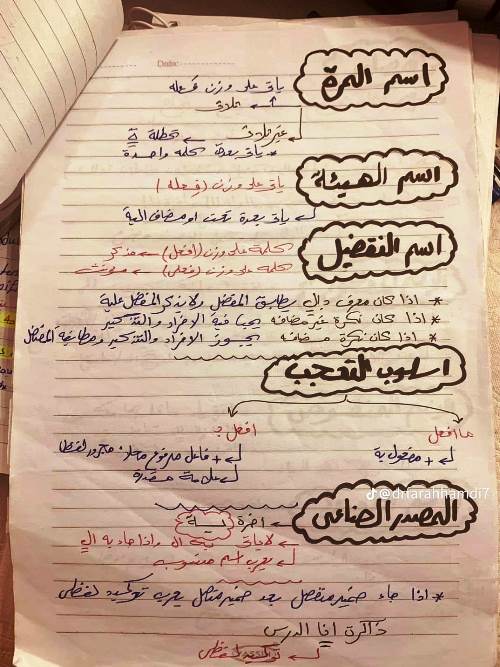 Date:
اسم المرة
يأتي على وزن فَعله
ثلاثي
غير ثلاثي ← تكملة ة
* يأتي بعدة كلمة واحدة
اسم الهيئة
يأتي على وزن (فِعله)
يأتي بعدة نعت او مضاف الية
اسم التفضيل
الكلمة على وزن (افعل) ← مذكر
الكلمة على وزن (فعلى) ← مؤنث
* اذا كان معرف بال يطابق المفضل ولا يذكر المفضل علية
* اذا كان نكرة غير مضافه يجب فية الافراد والتذكير
* اذا كان نكرة مضافه يجوز الافراد والتذكير ومطابقة المفضل
اسلوب التعجب
ما افعل
افعل بـ
+ مفعول به
+ فاعل مرفوع محلاً مجرور لفظا
علامة مقدرة
المصدر الصناعي
اخرة ية
لا ياخذ ال واذا جاء به ال
يعرب اسم منسوب
* اذا جاء ضمير منفصل بعد ضمير متصل يعرب توكيد لفظي
ذاكرة انا الدرس
توكيد لفظي
@drfarahhamdi7